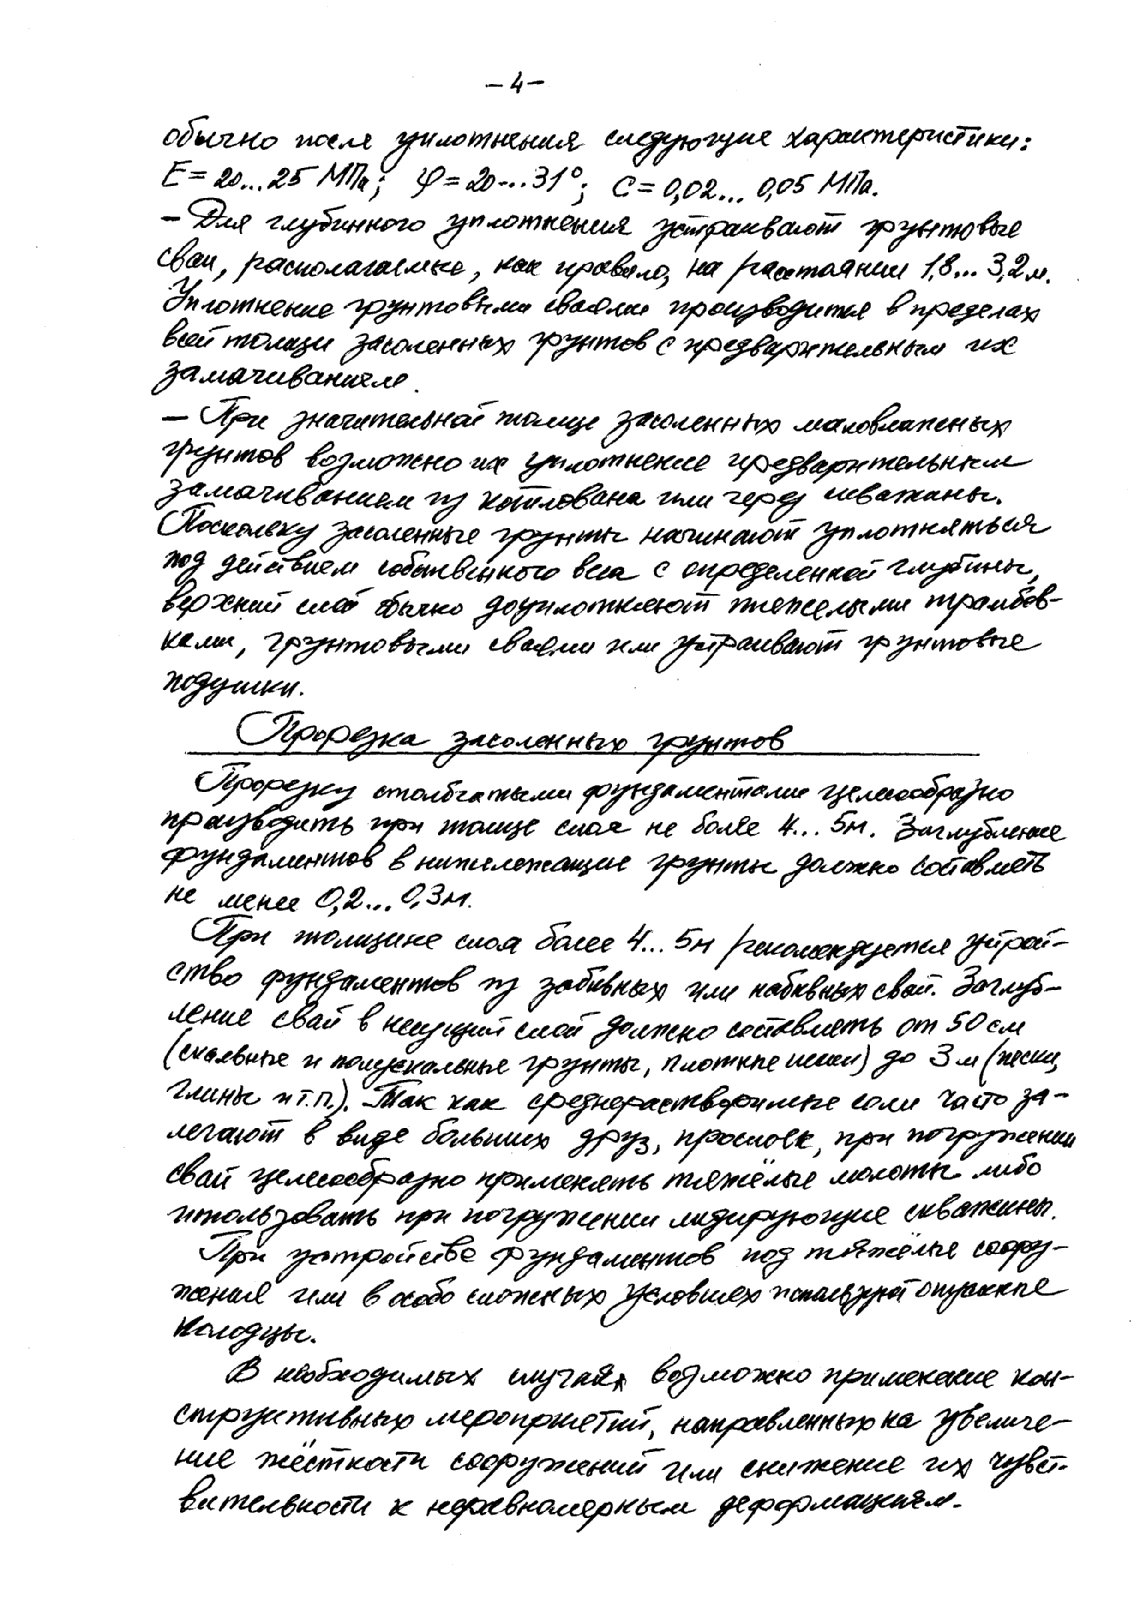 – 4 –
обычно после уплотнения следующие характеристики:
E = 20...25 МПа; φ = 20...31°; C = 0,02... 0,05 МПа.
– Для глубинного уплотнения устраивают грунтовые
сваи, располагаемые, как правило, на расстоянии 1,8... 3,2 м.
Уплотнение грунтовыми сваями производится в пределах
всей толщи засоленных грунтов с предварительным их
замачиванием.
– При значительной толще засоленных маловлажных
грунтов возможно их уплотнение предварительным
замачиванием из котлована или через скважины.
Поскольку засоленные грунты начинают уплотняться
под действием собственного веса с определенной глубины,
верхний слой обычно доуплотняют тяжелыми трамбов-
ками, грунтовыми сваями или устраивают грунтовые
подушки.
Прорезка засоленных грунтов
Прорезку столбчатыми фундаментами целесообразно
производить при толще слоя не более 4... 5м. Заглубление
фундаментов в нижележащие грунты должно составлять
не менее 0,2... 0,3м.
При толщине слоя более 4... 5м рекомендуется устрой-
ство фундаментов из забивных или набивных свай. Заглуб-
ление свай в несущий слой должно составлять от 50 см
(скальные и полускальные грунты, плотные пески) до 3 м (пески,
глины и т.п.). Так как среднерастворимые соли часто за-
легают в виде больших друз, прослоек, при погружении
свай целесообразно применять тяжёлые молоты либо
использовать при погружении лидирующие скважины.
При устройстве фундаментов под тяжёлые соору-
жения или в особо сложных условиях используют опускные
колодцы.
В необходимых случаях возможно применение кон-
структивных мероприятий, направленных на увеличе-
ние жёсткости сооружений или снижение их чувст-
вительности к неравномерным деформациям.